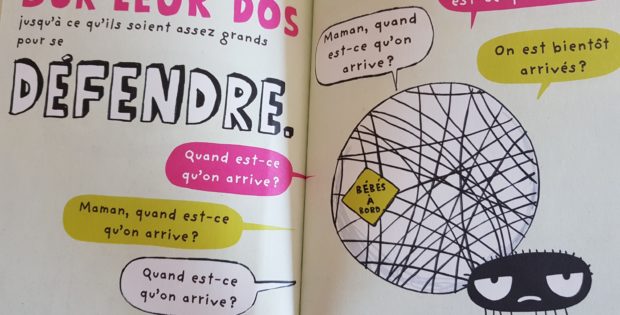 SUR LEUR DOS
jusqu'à ce qu'ils soient assez grands
pour se
DÉFENDRE.
Quand est-ce
qu'on arrive?
Maman, quand est-ce
qu'on arrive?
Quand est-ce
qu'on arrive?
Maman, quand
est-ce qu'on
arrive?
On est bientôt
arrivés?
BÉBÉS
À
BORD